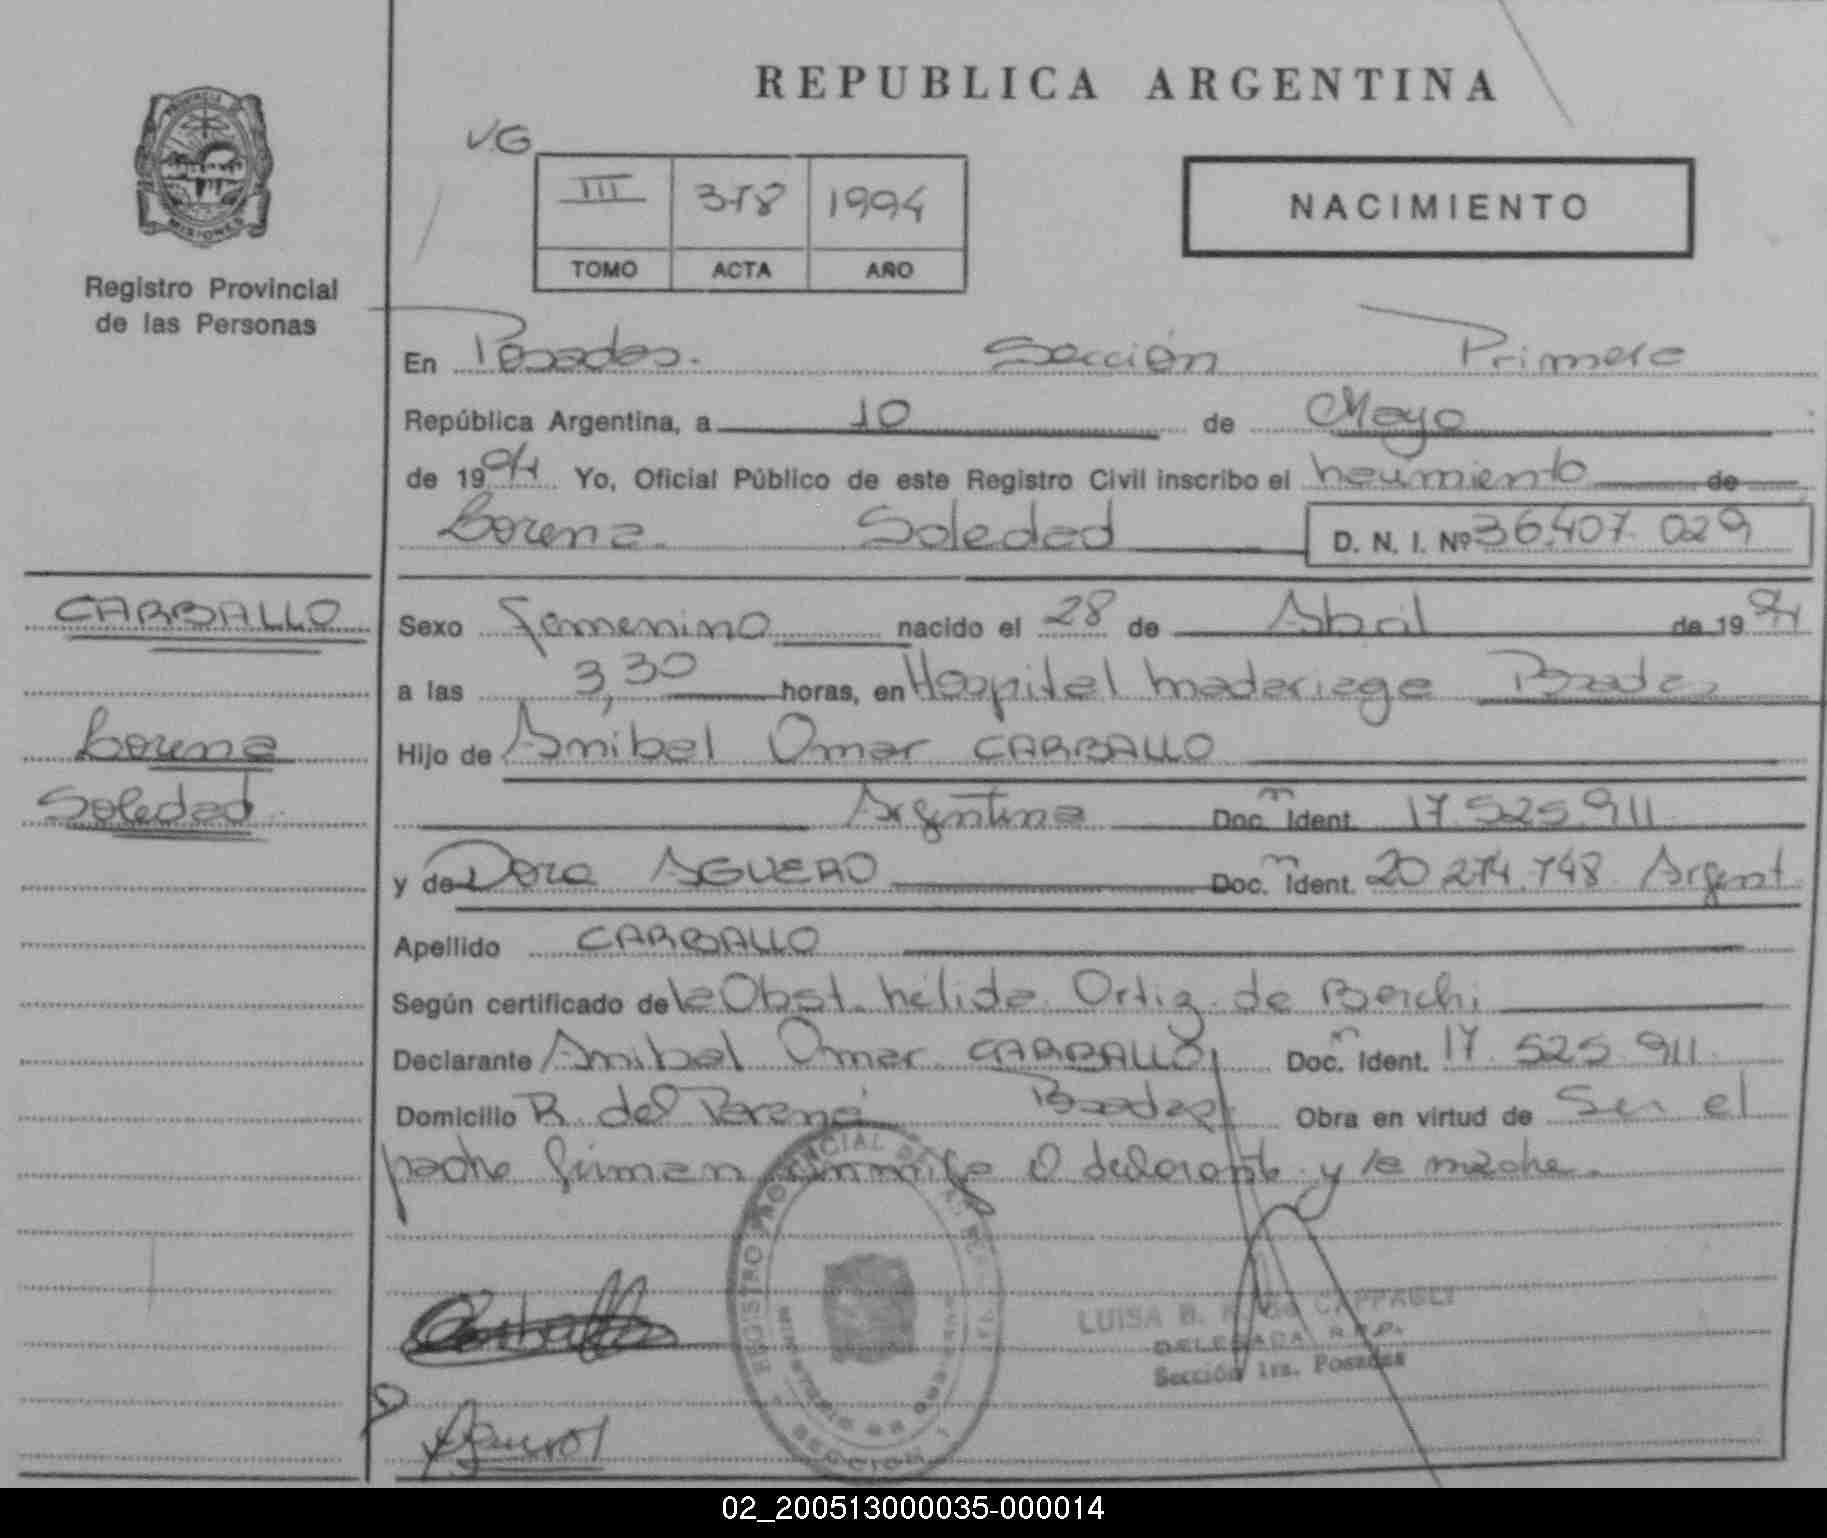 REPUBLICA ARGENTINA
PROVINCIA
MISIONES
Registro Provincial
de las Personas
VG
III 318 1994
TOMO ACTA AÑO
NACIMIENTO
En Posadas. Sección Primera
República Argentina, a 10 de Mayo
de 1994 Yo, Oficial Público de este Registro Civil inscribo el nacimiento de
Lorena Soledad D. N. I. Nº 36.407.029
CARBALLO
Lorena
Soledad
Sexo Femenino nacido el 28 de Abril de 1994
a las 3,30 horas, en Hospital Madariaga Posadas
Hijo de Anibal Omar CARBALLO
Argentina Doc. m Ident. 17.525.911
y de Dora AGUERO Doc. m Ident. 20.274.748 Argent.
Apellido CARBALLO
Según certificado de la Obst. Nélida Ortiz de
Declarante Anibal Omar CARBALLO Doc. m Ident. 17.525.911
Domicilio R. del Paraná Posadas Obra en virtud de Ser el
padre firman conmigo el declarante y la madre.
REGISTRO PROVINCIAL DE LAS PERSONAS
SECCION 1
LUISA B. de CAPPAGLI
DELEGADA R.P.P.
Sección 1ra. Posadas
Carballo
Aguero
02_200513000035-000014